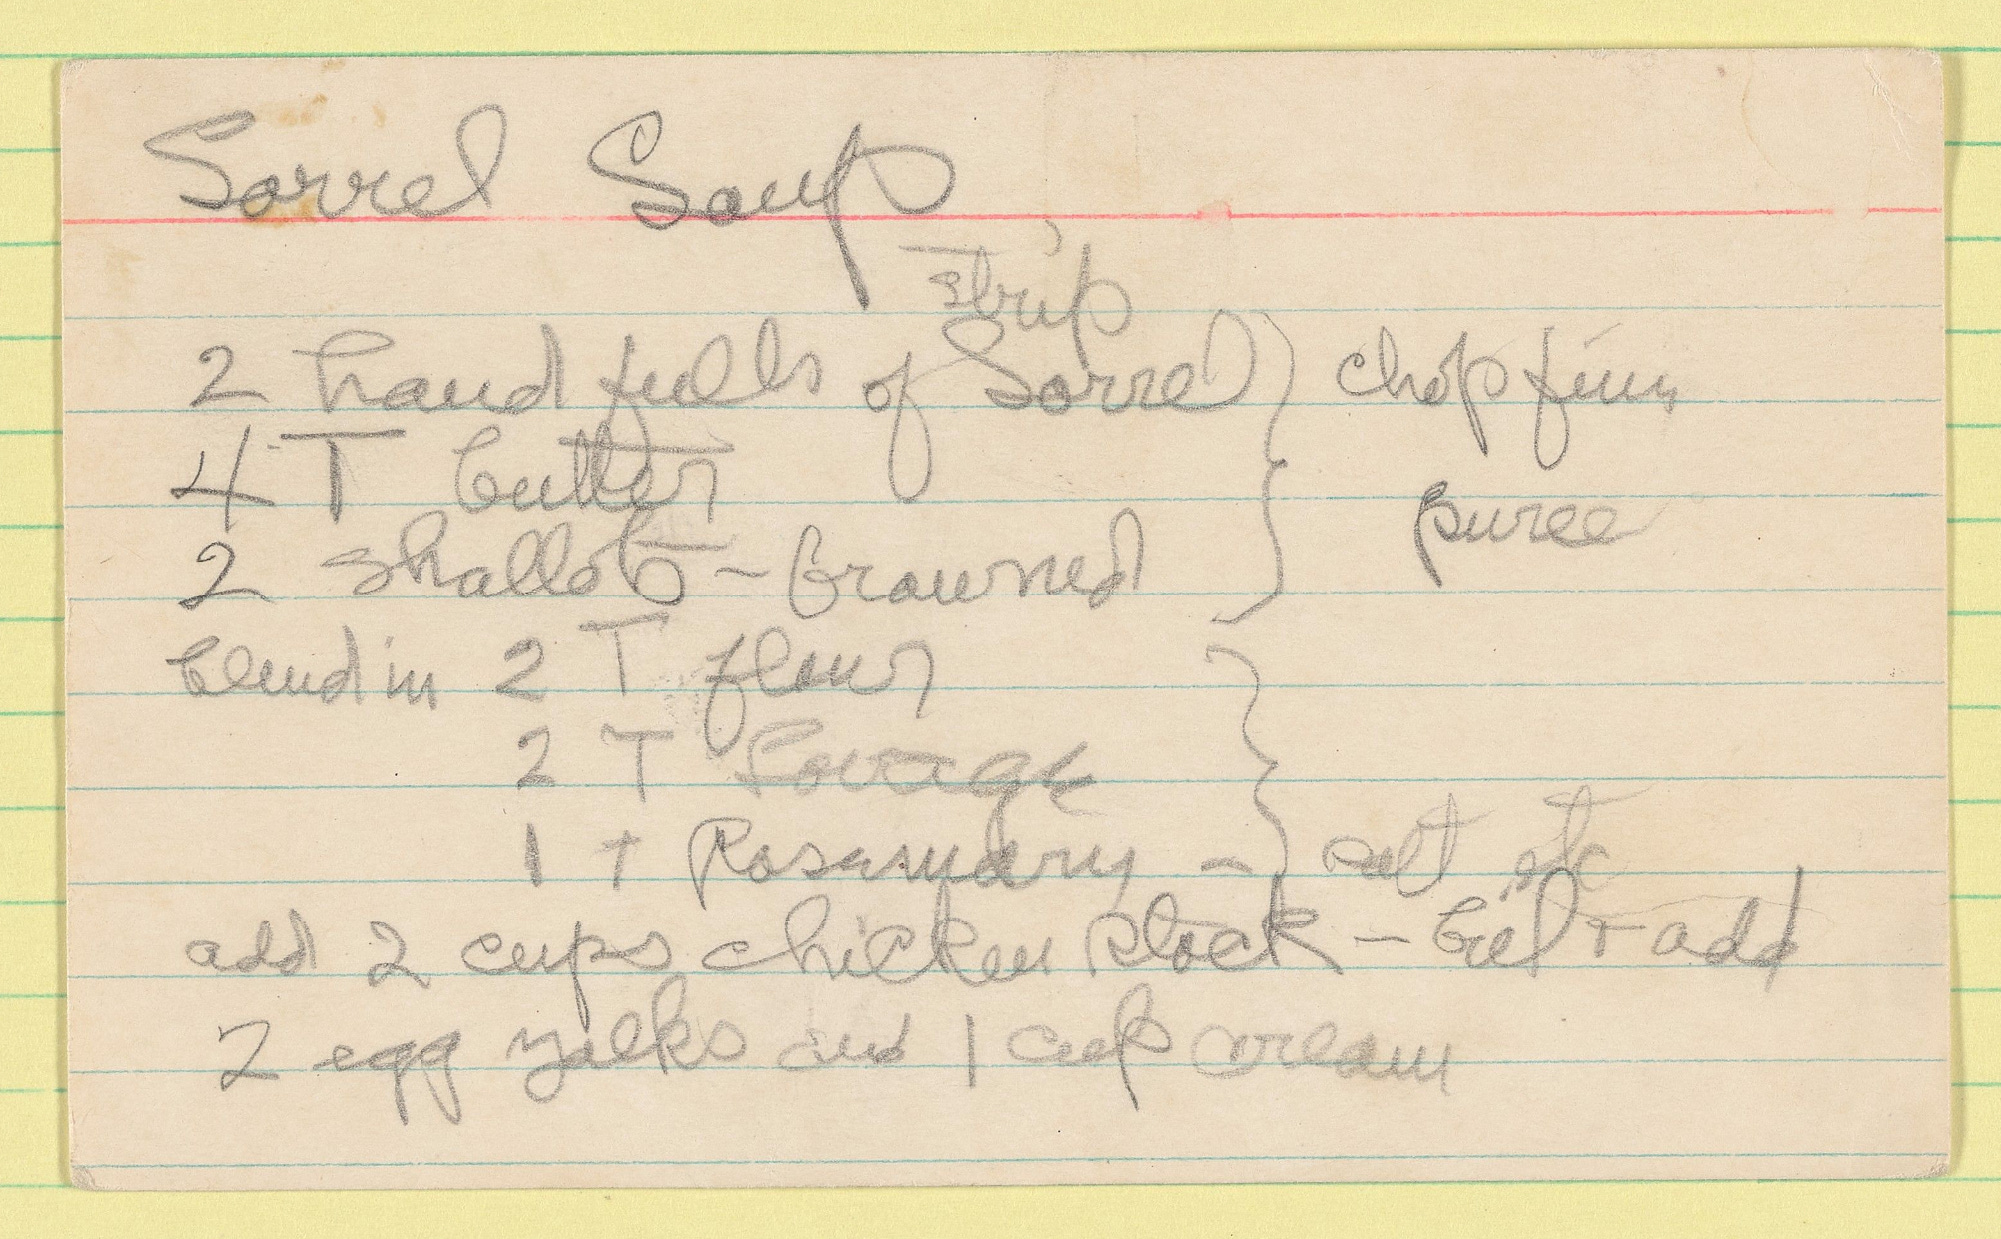 Sorrel Soup
strip
2 handfulls of Sorrel } chop fine
4 T butter
puree
2 shallots - browned
blend in 2 T flour
2 T Lovage
1 t Rosemary - salt etc
add 2 cups chicken stock - boil + add
2 egg yolks and 1 cup cream